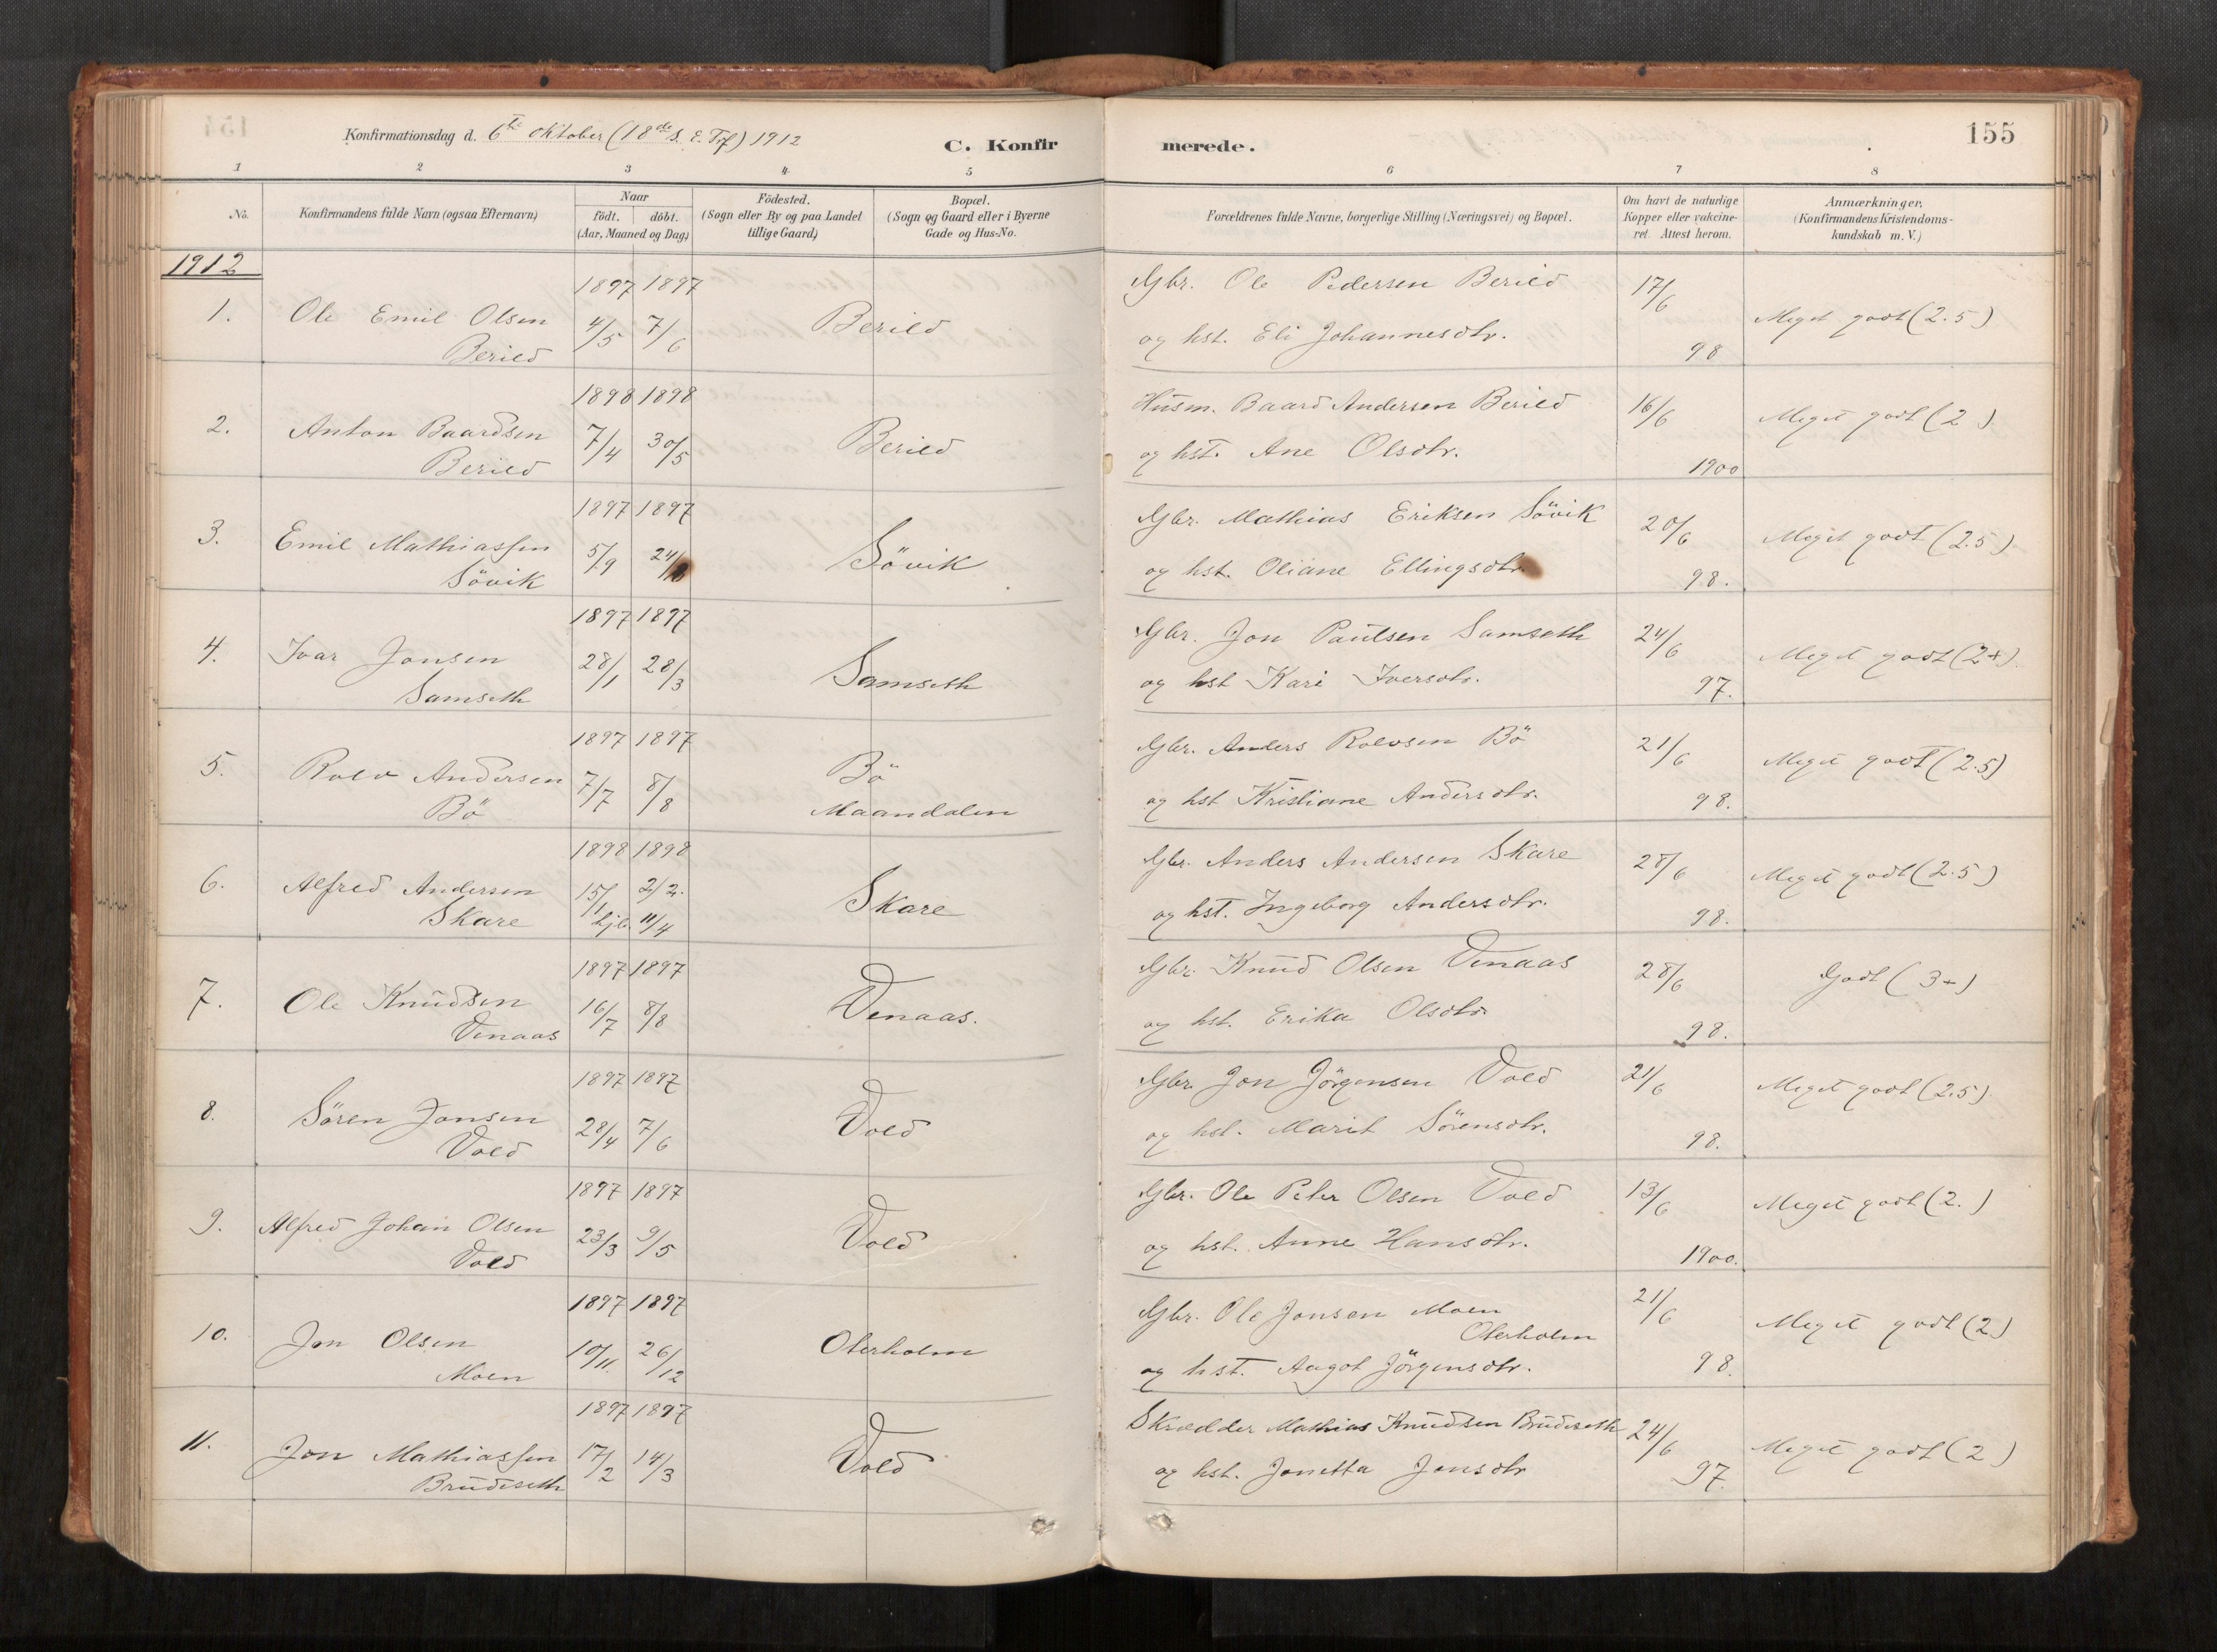 Konfirmationsdag d. 6te oktober (18de S. e. Tref) 1912
C. Konfirmerede.
155
1 2 3 4 5 6 7 8
No.
Konfirmandens fulde Navn (ogsaa Efternavn)
Naar
födt. döbt.
(Aar, Maaned og Dag)
Födested.
(Sogn eller By og paa Landet
tillige Gaard)
Bopæl.
(Sogn og Gaard eller i Byerne
Gade og Hus-No.
Forældrenes fulde Navne, borgerlige Stilling (Næringsvei) og Bopæl.
Om havt de naturlige
Kopper eller vakcine-
ret. Attest herom.
Anmærkninger.
(Konfirmandens Kristendoms-
kundskab m. V.)
1912
1897 1897
1. Ole Emil Olsen 4/5 7/6 Berild
Berild
Gbr. Ole Pedersen Berild 17/6
og hst. Eli Johannesdtr. 98
Meget godt (2.5)
1898 1898
2. Anton Baardsen 7/4 30/5 Berild
Berild
Husm. Baard Andersen Berild 16/6
og hst. Ane Olsdtr. 1900
Meget godt (2)
1897 1897
3. Emil Mathiassen 5/9 24/8 Sövik
Sövik
Gbr. Mathias Eriksen Sövik 20/6
og hst. Oliane Ellingsdtr. 98.
Meget godt (2.5)
1897 1897
4. Ivar Jonsen 28/1 28/3 Samseth
Samseth
Gbr. Jon Paulsen Samseth 24/6
og hst Kari Iversdtr. 97.
Meget godt (2+).
1897 1897
5. Rolv Andersen 7/7 8/8 Bö
Bö Maandalen
Gbr. Anders Rolvsen Bö 21/6
og hst Kristiane Andersdtr. 98.
Meget godt (2.5)
1898 1898
6. Alfred Andersen 15/1 2/2. Skare
Skare hjd. 11/4
Gbr. Anders Andersen Skare 28/6
og hst. Ingeborg Andersdtr. 98.
Meget godt (2.5)
1897 1897
7. Ole Knudsen 16/7 8/8 Venaas.
Venaas
Gbr. Knud Olsen Venaas 28/6
og hst. Erika Olsdtr. 98.
Godt (3+)
1897 1897
8. Sören Jonsen 28/4 7/6 Vold
Vold
Gbr. Jon Jörgensen Vold 21/6
og hst. Marit Sörensdtr. 98.
Meget godt (2.5)
1897 1897
9. Alfred Johan Olsen 23/3 9/5 Vold
Vold
Gbr. Ole Peter Olsen Vold 13/6
og hst. Anne Hansdtr. 1900.
Meget godt (2.)
1897 1897
10. Jon Olsen 10/11. 26/12 Oterholm
Moen
Gbr. Ole Jonsen Moen 21/6
Oterholm
og hst. Aagot Jörgensdtr. 98.
Meget godt (2)
1897 1897
11. Jon Mathiassen 17/2 14/3 Vold
Brudeseth
Skrædder Mathias Knudsen Brudeseth 24/6
og hst. Jonetta Jonsdtr 97.
Meget godt (2)